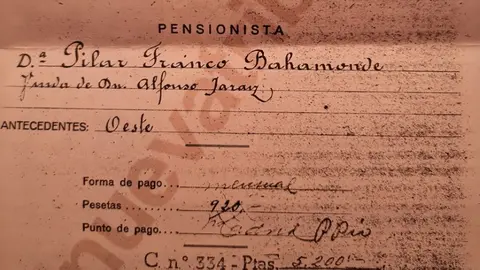 PENSIONISTA
D.ª Pilar Franco Bahamonde
Viuda de Dn. Alfonso Jaraiz
ANTECEDENTES: Oeste
Forma de pago.... mensual
Pesetas ............ 920,-
Punto de pago.... Madrid P Pía
C. n.º 334- Ptas. 5,200
nuevatribuna